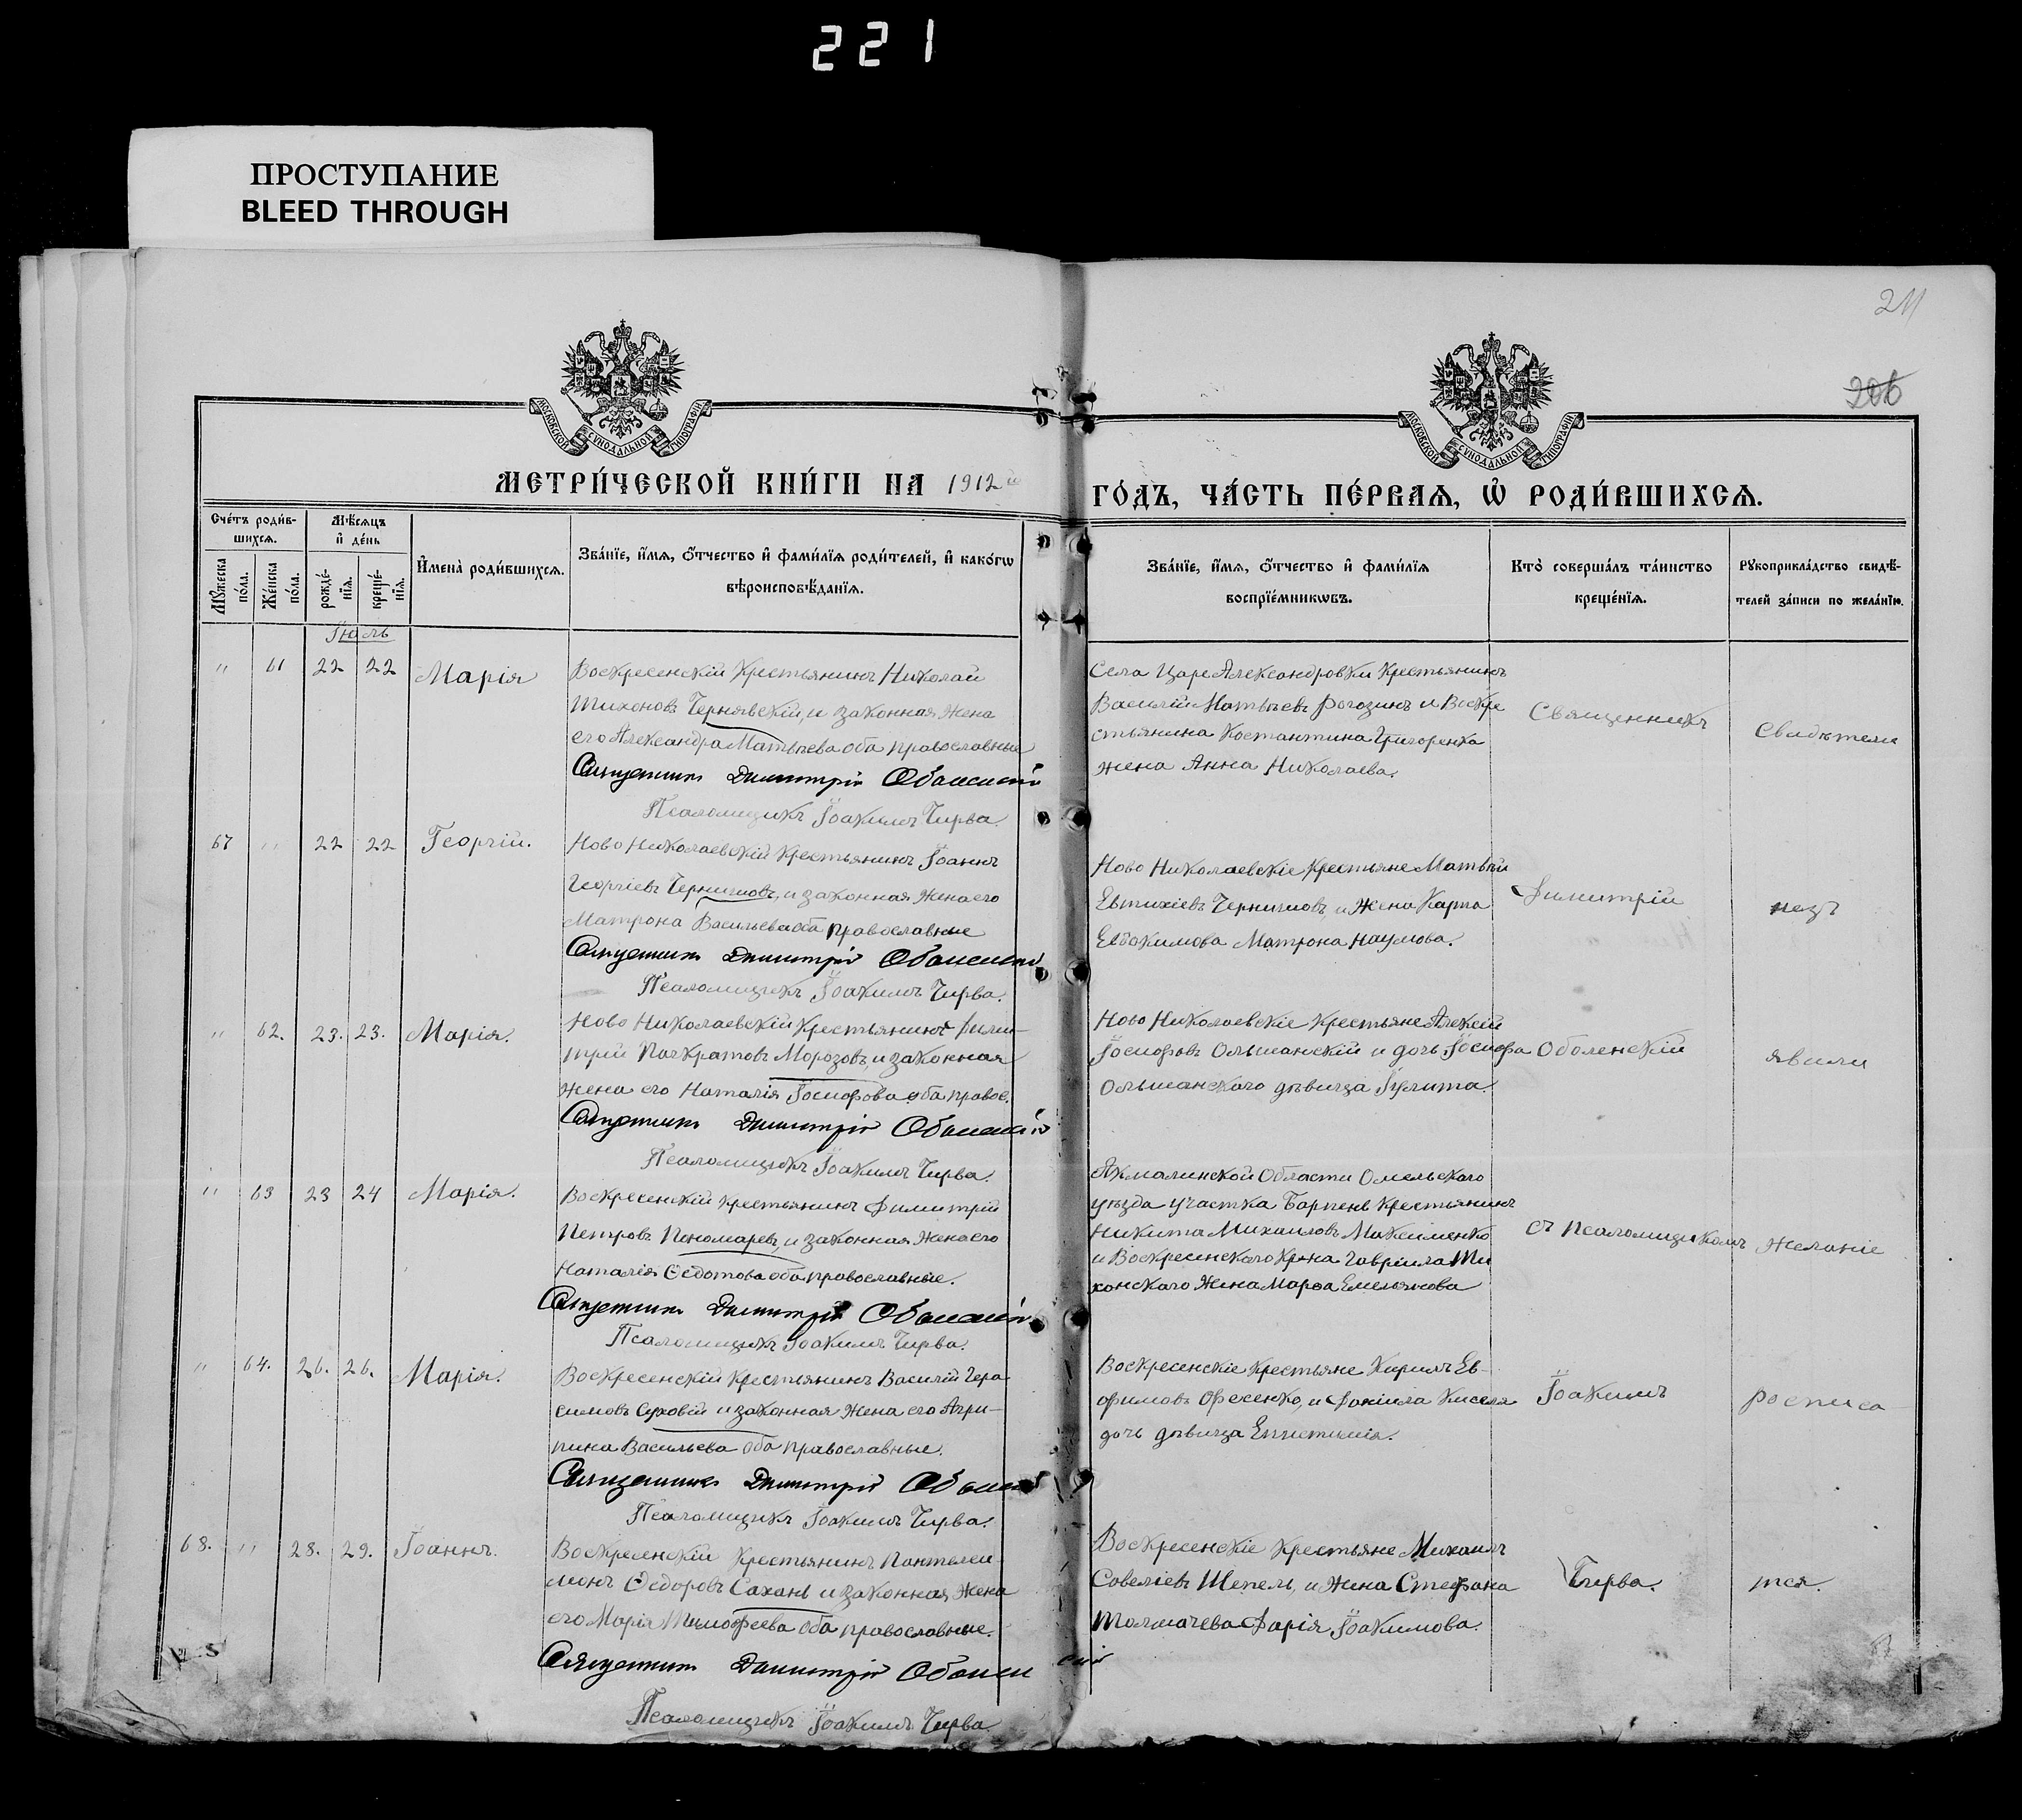 221
ПРОСТУПАНИЕ
BLEED THROUGH
211
206
МОСКОВСКОЙ СѴНОДАЛЬНОЙ ТИПОГРАФІИ
МОСКОВСКОЙ СѴНОДАЛЬНОЙ ТИПОГРАФІИ
МЕТРИ́ЧЕСКОЙ КНИ́ГИ НА 1912й
ГО́ДЪ, ЧА́СТЬ ПЕ́РВАЯ, Ѡ҆ РОДИ́ВШИХСЯ.
Сче́тъ роди́в-
шихся.
Мѣ́сяцъ
и҆ де́нь
Мꙋ́жеска
по́ла.
Же́нска
по́ла.
рожде́-
нїя.
креще́-
нїя.
И҆мена̀ роди́вшихся.
Зва́нїе, и҆́мя, ѻ҆́тчество и҆ фами́лїя роди́телей, и҆ како́гѡ
вѣроисповѣ́данїя.
Зва́нїе, и҆́мя, ѻ҆́тчество и҆ фами́лїя
воспрїе́мникѡвъ.
Кто̀ соверша́лъ та́инство
креще́нїя.
Рꙋкоприкла́дство свидѣ́-
телей за́писи по жела́нїю.
Іюль
" 61 22 22 Марія
Воскресенскій Крестьянинъ Николай
Тихоновъ Чернявскій, и законная жена
его Александра Матвѣева оба православные
Священникъ Димитрій Оболенскій
Псаломщикъ Іоакимъ Чирва.
Села Царе Александровки Крестьянинъ
Василій Матвѣевъ Рогозинъ и Воскре
стьянина Костантина Григоренка
жена Анна Николаева.
67 " 22 22 Георгій.
Ново Николаевскій Крестьянинъ Іоаннъ
Георгіевъ Чернишовъ, и законная жена его
Матрона Васильева оба православные
Священникъ Димитрій Оболенскій
Псаломщикъ Іоакимъ Чирва.
Ново Николаевскіе Крестьяне Матвѣй
Евтихіевъ Чернишовъ, и жена Карпа
Евдокимова Матрона Наумова.
" 62. 23. 23. Марія.
Ново Николаевскій Крестьянинъ Дими-
трій Панкратовъ Морозовъ, и законная
жена его Наталія Іосифова оба правос.
Священникъ Димитрій Оболенскій
Псаломщикъ Іоакимъ Чирва.
Ново Николаевскіе Крестьяне Алексій
Іосифовъ Ольшанскій и дочь Іосифа
Ольшанского дѣвица Іулита.
" 63 23 24 Марія.
Воскресенскій крестьянинъ Димитрій
Петровъ Пономаревъ, и законная жена его
Наталія Ѳедотова оба православные.
Священникъ Димитрій Оболенскій
Псаломщикъ Іоакимъ Чирва.
Акмалинской Области Омельского
уѣзда участка Крестьянинъ
Никита Михаиловъ Максименко
и Воскресенского Кр-на Гавріила Ти
хонского жена Марѳа Емельянова
" 64. 26. 26. Марія.
Воскресенскій Крестьянинъ Василій Гера
симовъ Суховій и законная жена его Агри-
пина Васильева оба православные.
Священникъ Димитрій Оболенскій
Псаломщикъ Іоакимъ Чирва.
Воскресенскіе Крестьяне Кирилъ Ев-
фимовъ Фесенко, и Даніила Киселя
дочь дѣвица Епистимія.
68. " 28. 29. Іоаннъ.
Воскресенскій Крестьянинъ Пантелеи-
монъ Ѳедоровъ Сахань и законная жена
его Марія Тимофеева оба православные.
Священникъ Димитрій Оболенскій
Псаломщикъ Іоакимъ Чирва.
Воскресенскіе Крестьяне Михаилъ
Савеліевъ Шепель, и жена Стефана
Толмачева Дарія Іоакимова.
Священникъ
Димитрій
Оболенскій
съ псаломщикомъ
Іоакимъ
Чирва.
Свидѣтели
неъ
явили
желаніе
росписа
тся.